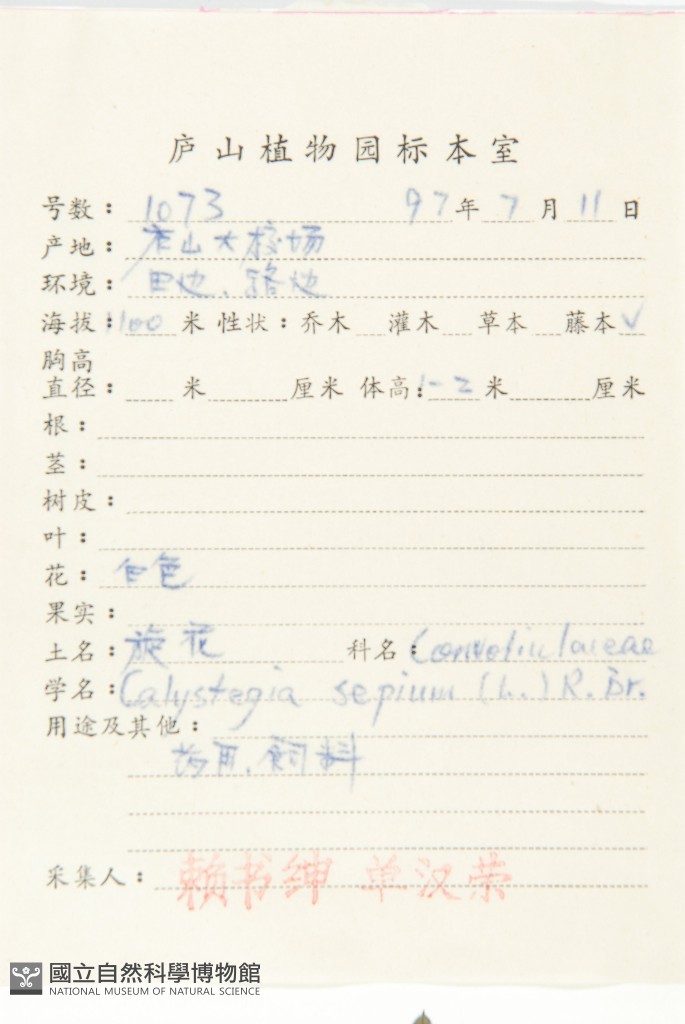 庐山植物园标本室
号数： 1073 97年 7 月 11 日
产地： 庐山大校场
环境： 田边、路边
海拔： 1100 米 性状：乔木 灌木 草本 藤本 √
胸高
直径： 米 厘米 体高： 1-2 米 厘米
根：
茎：
树皮：
叶：
花： 白色
果实：
土名： 旋花 科名： Convolvulaceae
学名： Calystegia sepium (L.) R. Br.
用途及其他：
药用、饲料
采集人： 赖书绅 单汉荣
國立自然科學博物館
NATIONAL MUSEUM OF NATURAL SCIENCE